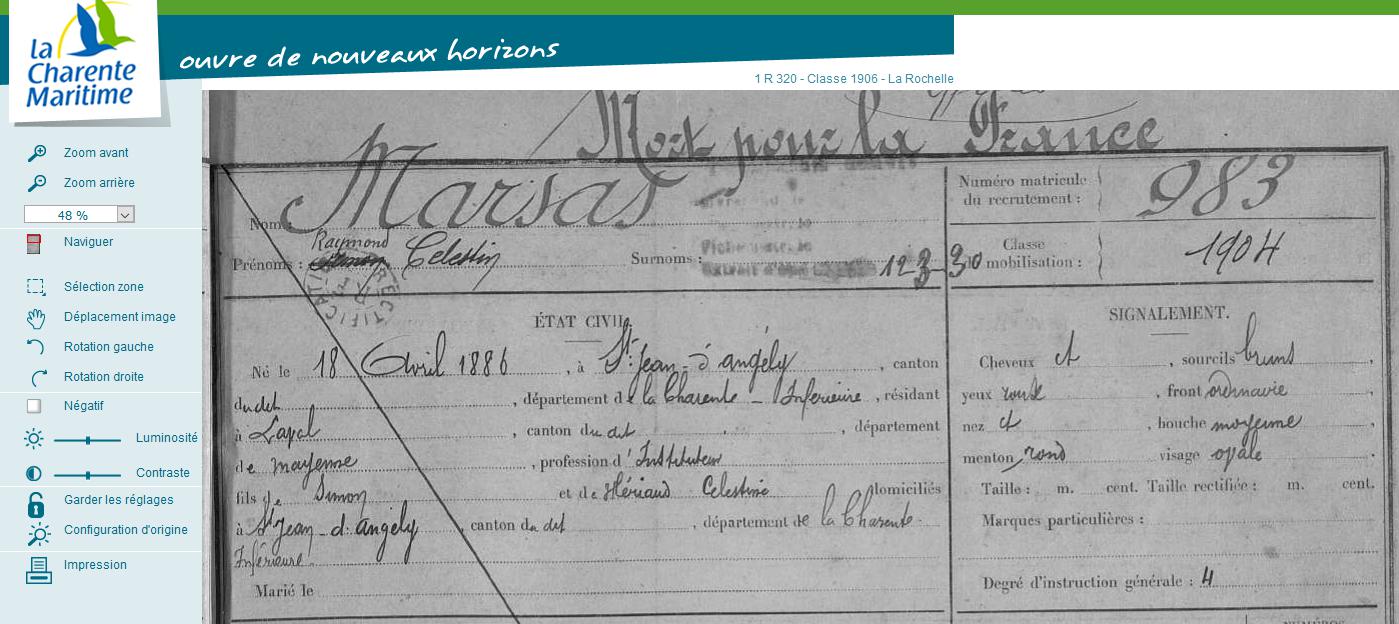 la
Charente
Maritime
ouvre de nouveaux horizons
1 R 320 - Classe 1906 - La Rochelle
Zoom avant
Zoom arrière
48 %
Naviguer
Sélection zone
Déplacement image
Rotation gauche
Rotation droite
Négatif
Luminosité
Contraste
Garder les réglages
Configuration d'origine
Impression
Mort pour la France
Nom: Marsas
Raymond
Prénoms : Simon Celestin Surnoms : 12-3-30
RECTIFICATIF
Numéro matricule
du recrutement : 983
Classe
de mobilisation : 1904
ÉTAT CIVIL.
Né le 18 Avril 1886, à St Jean-d'angely, canton
dudit, département de la Charente-Inferieure, résidant
à Laval, canton dudit, département
de mayenne, profession d'Instituteur
fils de Simon et de Hériaud Celestine domiciliés
à St Jean-d'angely, canton du dit, département de la Charente-
Inférieure.
Marié le
SIGNALEMENT.
Cheveux et, sourcils bruns
yeux, front ordinaire,
nez et, bouche moyenne,
menton rond visage ovale.
Taille : m. cent. Taille rectifiée : m. cent.
Marques particulières :
Degré d'instruction générale : 4
NUMÉROS